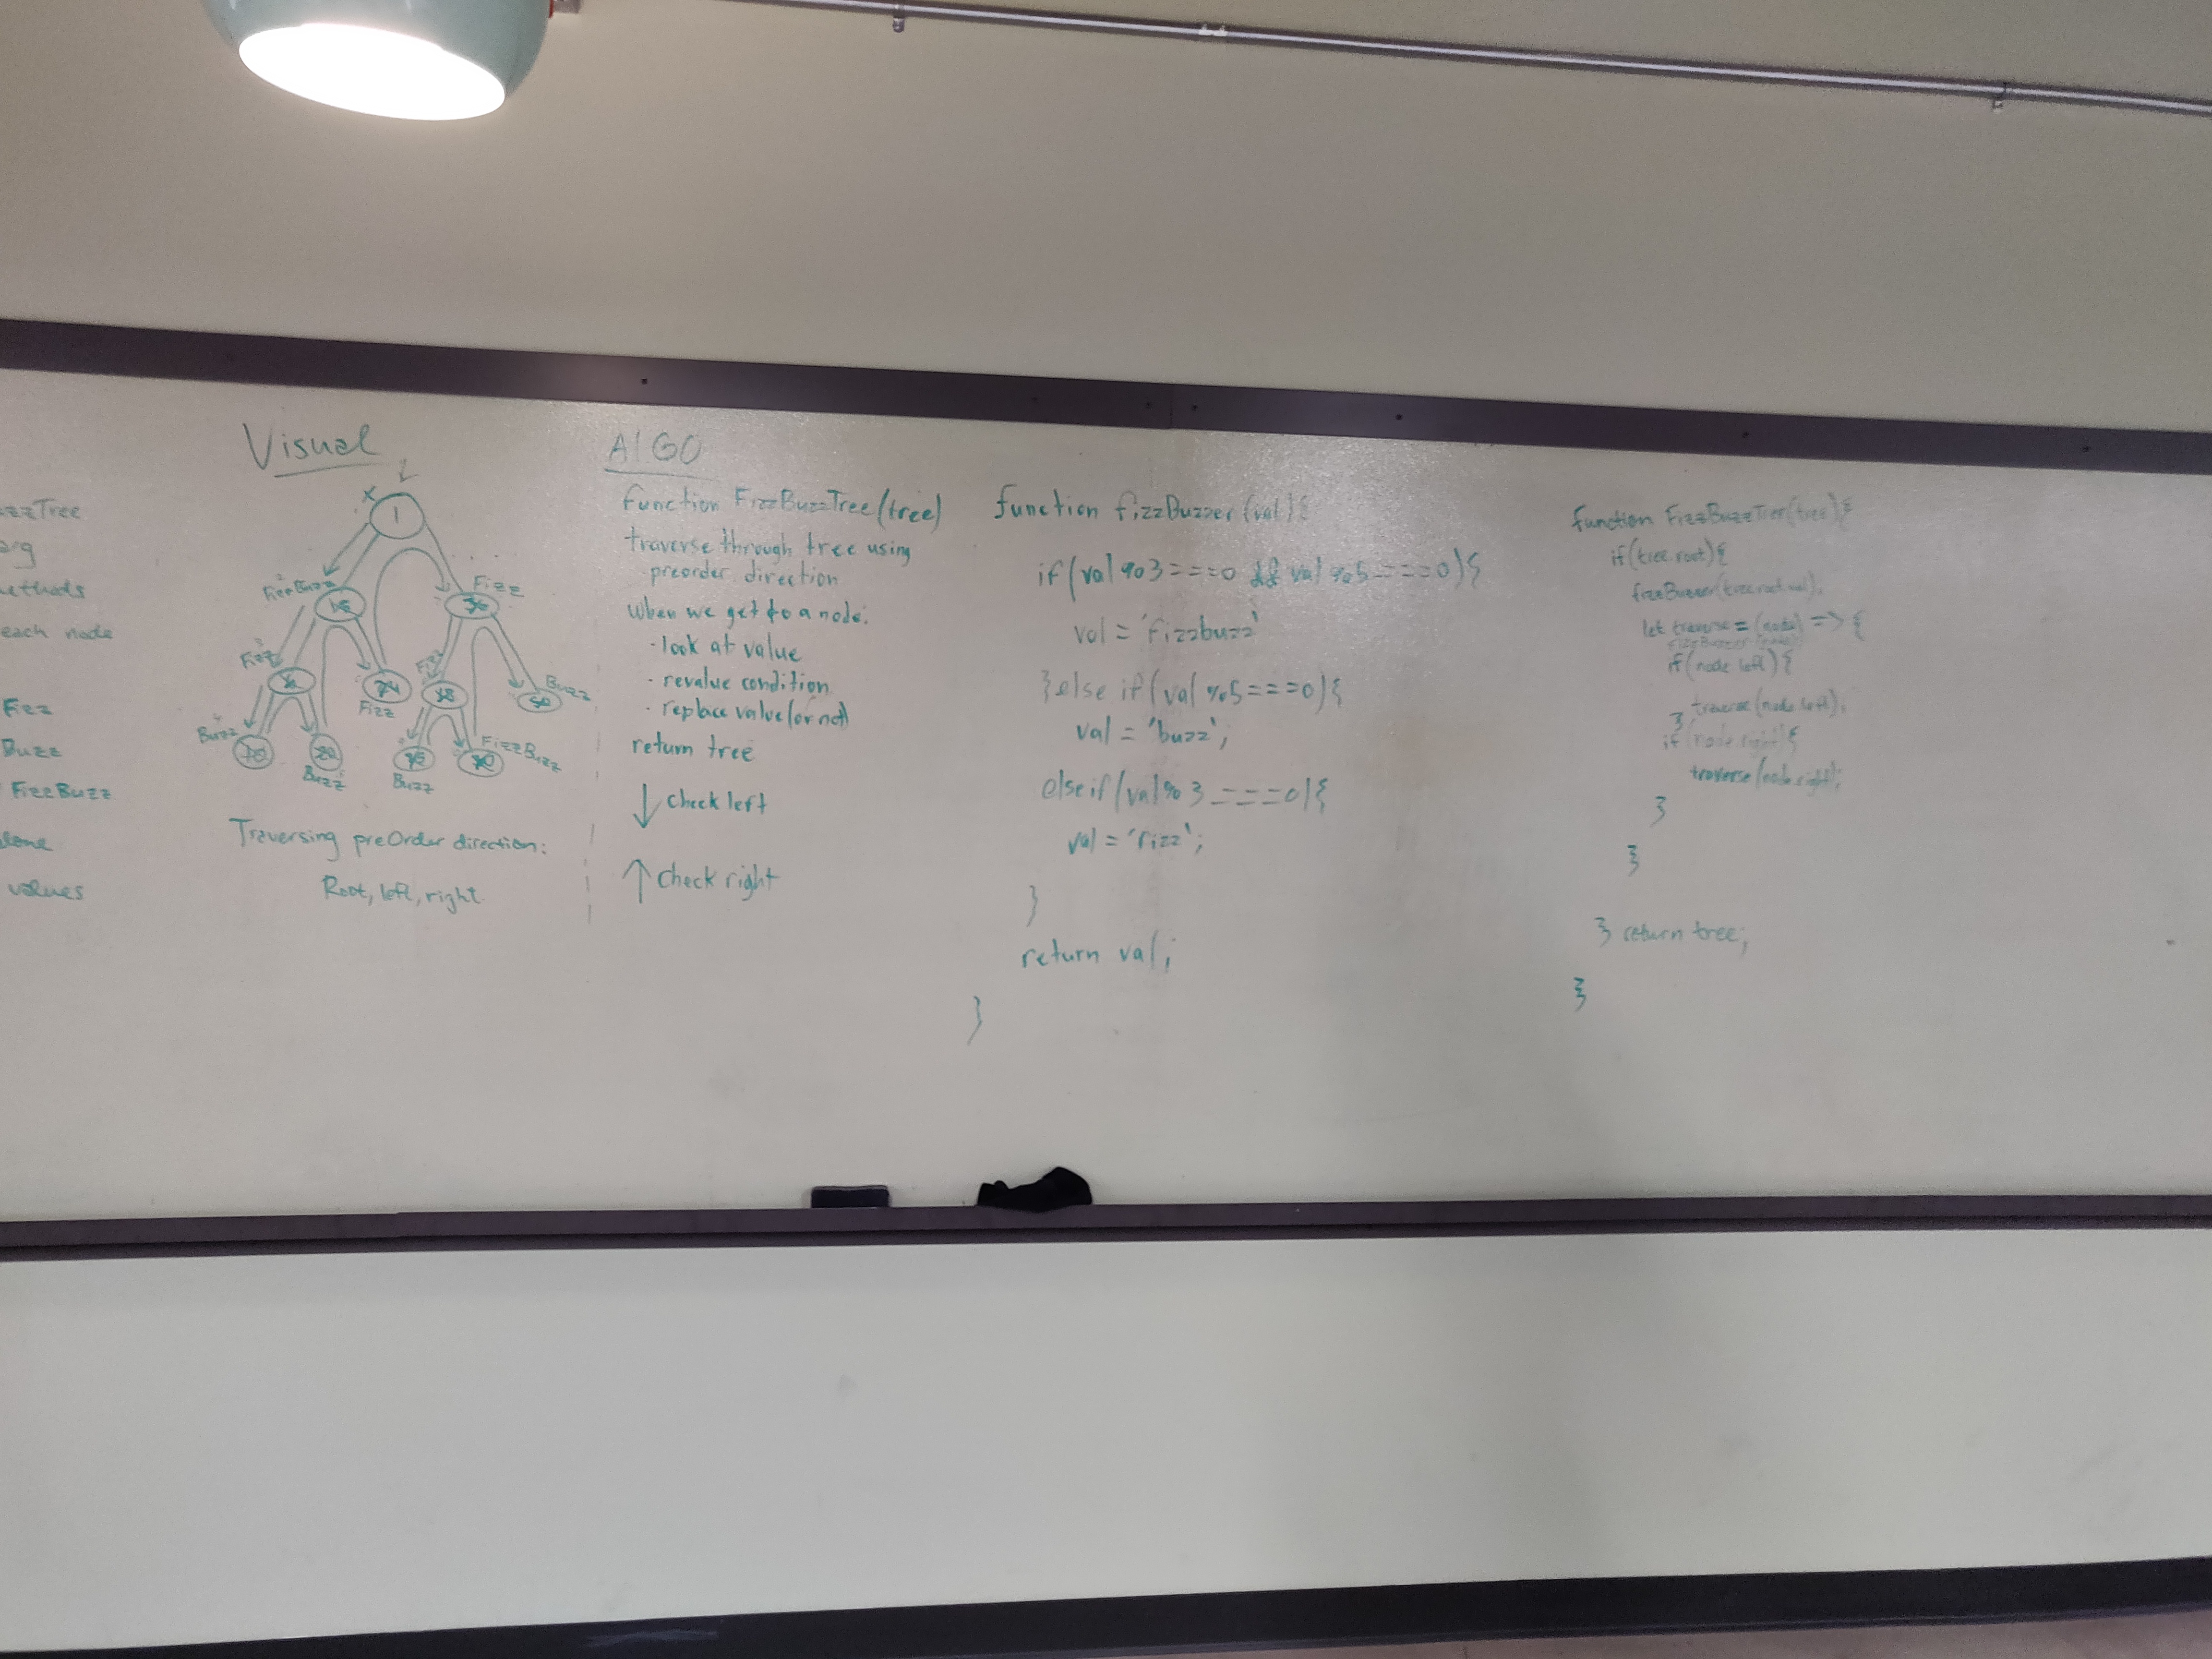 zzTree
arg
ethods
each node
Fizz
Buzz
FizzBuzz
alone
values
Visual
X
1
2
FizzBuzz
15
Fizz
36
3
Fizz
Fizz
Buzz
50
Fizz
4
Buzz
FizzBuzz
Buzz
Buzz
Traversing preOrder direction:
Root, left, right
AlGO
function FizzBuzzTree(tree)
traverse through tree using
preorder direction
When we get to a node:
· look at value
· revalue condition
· replace value (or not)
return tree
↓ check left
↑ check right
function fizzBuzzer (val) {
if (val % 3 === 0 && val % 5 === 0) {
val = 'Fizzbuzz'
} else if (val % 5 === 0) {
val = 'buzz';
else if (val % 3 === 0) {
val = 'Fizz';
}
return val;
}
function FizzBuzzTree(tree) {
if (tree.root) {
fizzBuzzer(tree.root.val);
let traverse = (node) => {
if (node.left) {
traverse(node.left);
}
if (node.right) {
traverse(node.right);
}
}
} return tree;
}